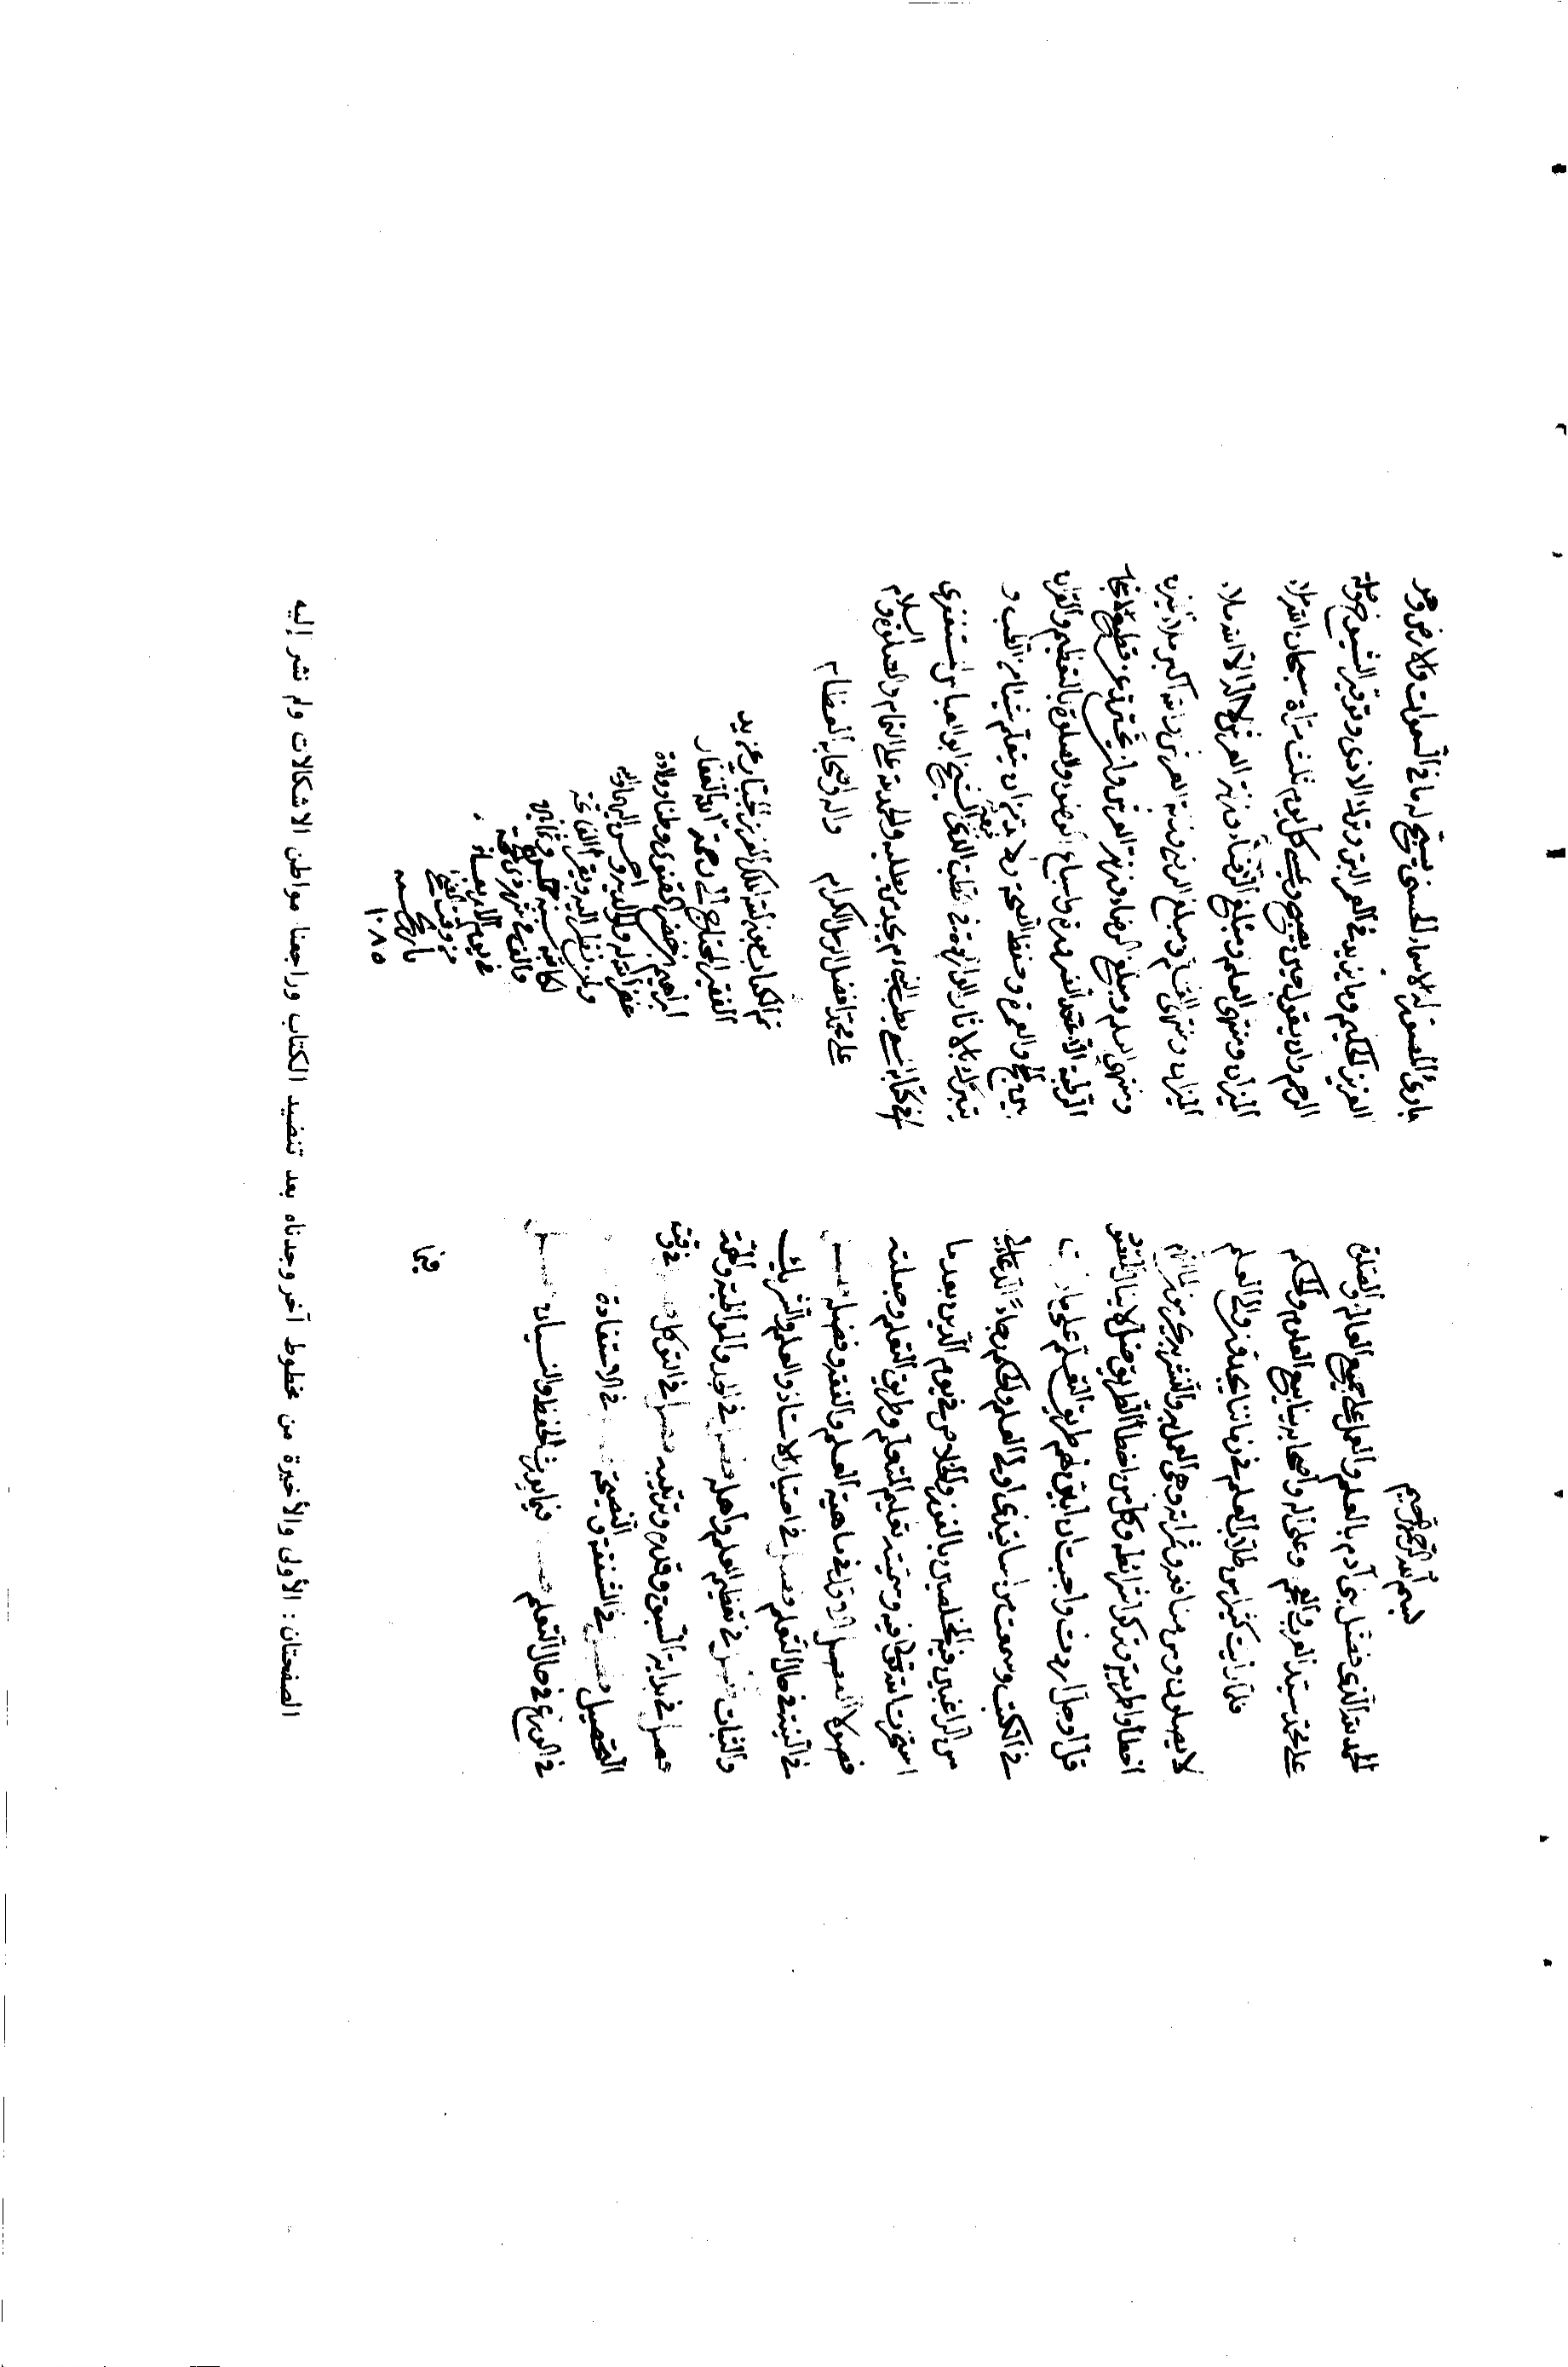 بسم الله الرحمن الرحيم
الحمد لله الذى فضل بنى آدم بالعلم والعمل على جميع العالم والصلوة
على محمد سيد العرب والعجم وعلى آله واصحابه ينابيع العلوم والحكم
فلما رايت كثيرا من طلاب العلم فى زماننا يجدون الى العلم
لا يصلون ومن منافعه وثمراته وهى العمل به والنشر يحرمون لما انهم
اخطأوا طريقه وتركوا شرائطه وكل من اخطأ الطريق ضل لا ينال المقصود
قل او جل اردت واحببت ان ابين لهم طريق التعلم على ما رايت
فى الكتب وسمعت من اساتيذى اولى العلم والحكم رجاء الدعاء لى
من الراغبين فيه المخلصين بالفوز والخلاص فى يوم الدين بعد ما
استخرت الله تعالى فيه وسميته تعليم المتعلم وطريق التعلم وجعلته
فصولا فصل الاول فى ماهية العلم والفقه وفضله فصل
فى النية فى حال التعلم فصل فى اختيار الاستاذ والعلم والشريك
والثبات فصل فى تعظيم العلم واهله فصل فى الجد والمواظبة والهمة
فصل فى بداية السبق وقدره وترتيبه فصل فى التوكل فى وقت
التحصيل فصل فى الشفقة والنصيحة فى الاستفادة
فى الورع فى حال التعلم فيما يورث الحفظ والنسيان فصل
فيما
بارئ المصور له الاسماء الحسنى يسبح له ما فى السموات والارض وهو
العزيز الحكيم وما يزيد فى العمر البر وترك الاذى وتوقير الشيوخ وصلة
الرحم وان يقول حين يصبح ويمسى كل يوم ثلث مرات سبحان الله ملأ
الميزان ومنتهى العلم ومبلغ الرضاء وزنة العرش لا اله الا الله ملأ
الميزان ومنتهى العلم ومبلغ الرضا وزنة العرش والله اكبر ملأ الميزان
ومنتهى العلم ومبلغ الرضا وزنة العرش وان يحترز عن قطع الاشجار
الرطبة الا عند الضرورة واسباغ الوضوء والصلوة بالتعظيم والقران
بين الحج والعمرة وحفظ الصحة ولا بد من ان يتعلم شيئا من الطب و
يتبرك بالاثار الواردة فى الطب الذى جمع الشيخ ابو العباس المستغفرى
فى كتابه المسمى بطب النبى م يجده من يطلبه والحمد لله على التمام والصلوة والسلام
على محمد افضل الرسل الكرام واله واصحابه العظام
تم الكتاب بعون الله الملك العزيز الجبار عن يد
الفقير المحتاج الى رحمة الله الغفار
غفر الله له ولوالديه واحسن اليهما واليه
ولمن نظر اليه
تاريخ سنه
١٠٨٥
الصفحتان : الأولى والأخيرة من مخطوط آخر وجدناه بعد تنضيد الكتاب وراجعنا مواطن الاشكالات ولم نشر إليه